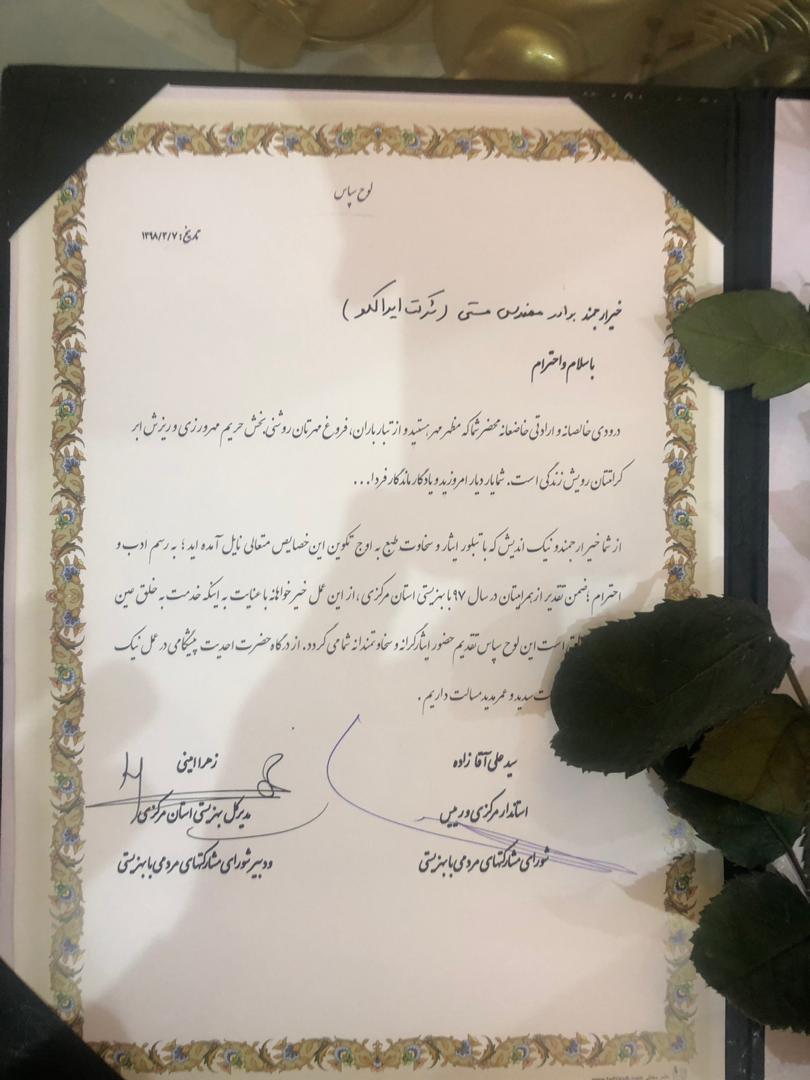 لوح سپاس
تاریخ: ۱۳۹۸/۳/۷
خیر ارجمند برادر مهندس مستی (شرکت ایرالکو)
با سلام و احترام
درودی خالصانه و ارادتی خاضعانه محضر شما که مظهر مهر هستید و از تبار باران، فروغ مهرتان روشنی بخش حریم مهرورزی و ریزش ابر
کرامتتان رویش زندگی است. شما یار دیار امروزید و یادگار ماندگار فردا...
از شما خیر ارجمند و نیک اندیش که با تبلور ایثار و سخاوت طبع به اوج تکوین این خصایص متعالی نایل آمده اید؛ به رسم ادب و
احترام؛ ضمن تقدیر از همراهیتان در سال ۹۷ با بهزیستی استان مرکزی، از این عمل خیرخواهانه با عنایت به اینکه خدمت به خلق عین
است این لوح سپاس تقدیم حضور ایثارگرانه و سخاوتمندانه شما می گردد. از درگاه حضرت احدیت پیشگامی در عمل نیک
سدید و عمر مدید مسالت داریم.
سید علی آقازاده
استاندار مرکزی و رییس
شورای مشارکتهای مردمی با بهزیستی
زهرا امینی
مدیرکل بهزیستی استان مرکزی
و دبیر شورای مشارکتهای مردمی با بهزیستی